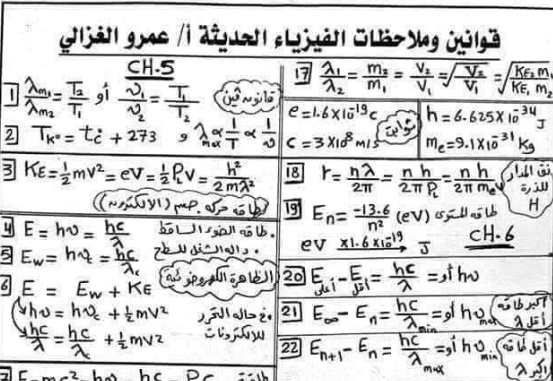 قوانين وملاحظات الفيزياء الحديثة أ/ عمرو الغزالي
CH.5
1 λm₁/λm₂ = T₂/T₁ أو υ₁/υ₂ = T₁/T₂ قانون فين
2 T_K° = t_c° + 273 و λ_max ∝ 1/T ∝ 1/υ
3 KE = ½mv² = eV = ½P_L v = h²/2mλ²
طاقة حركة جسم (الالكترون)
4 E = hυ = hc/λ طاقة الضوء الساقط
5 Ew = hυ_c = hc/λ_c دالة الشغل للسطح
الظاهرة الكهروضوئية
6 E = Ew + KE
hυ = hυ_c + ½mv² في حالة التحرر
hc/λ = hc/λ_c + ½mv² للالكترونات
7 E = mc² = hυ = hc/λ = P_L c طاقة
17 λ₁/λ₂ = m₂/m₁ = V₂/V₁ = √V₂/√V₁ = √(KE₂ m₂/KE₁ m₁)
e = 1.6×10⁻¹⁹ c
c = 3×10⁸ m/s
ثوابت
h = 6.625×10⁻³⁴ J
me = 9.1×10⁻³¹ Kg
18 r = nλ/2π = nh/2πP_L = nh/2πm_e v نق المدار للذرة H
19 En = -13.6/n² (eV) طاقة المستوى
eV ×1.6×10⁻¹⁹ → J CH.6
20 E أعلى - E أقل = hc/λ = أو hυ
21 E∞ - En = hc/λmin = أو hυmax أكبر طاقة أقل λ
22 En+1 - En = hc/λmax = أو hυmin أقل طاقة أكبر λ